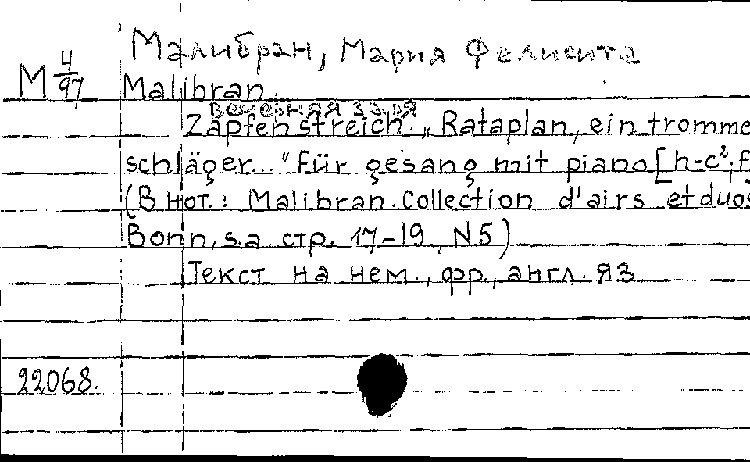 Малибран, Мария Фелисита
М 4/97 Malibran
Вечерняя заря
Zapfenstreich. „Rataplan, ein tromme
schläger..." Für gesang mit piano [h-c²; f
(В нот.: Malibran. Collection d'airs et duos
Bonn, s.a стр. 17-19, N5)
Текст на нем., фр., англ. яз
22068.